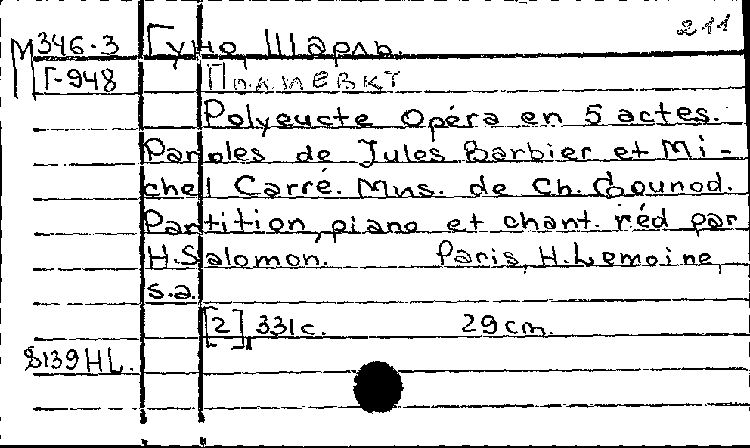 211
М346.3 Гуно, Шарль.
Г-948 Полиевкт
Polyeucte Opéra en 5 actes.
Paroles de Jules Barbier et Mi-
chel Carré. Mus. de Ch. Gounod.
Partition, piano et chant. réd par
H. Salomon. Paris, H. Lemoine,
s.a.
[2], 331c. 29cm.
8139HL.